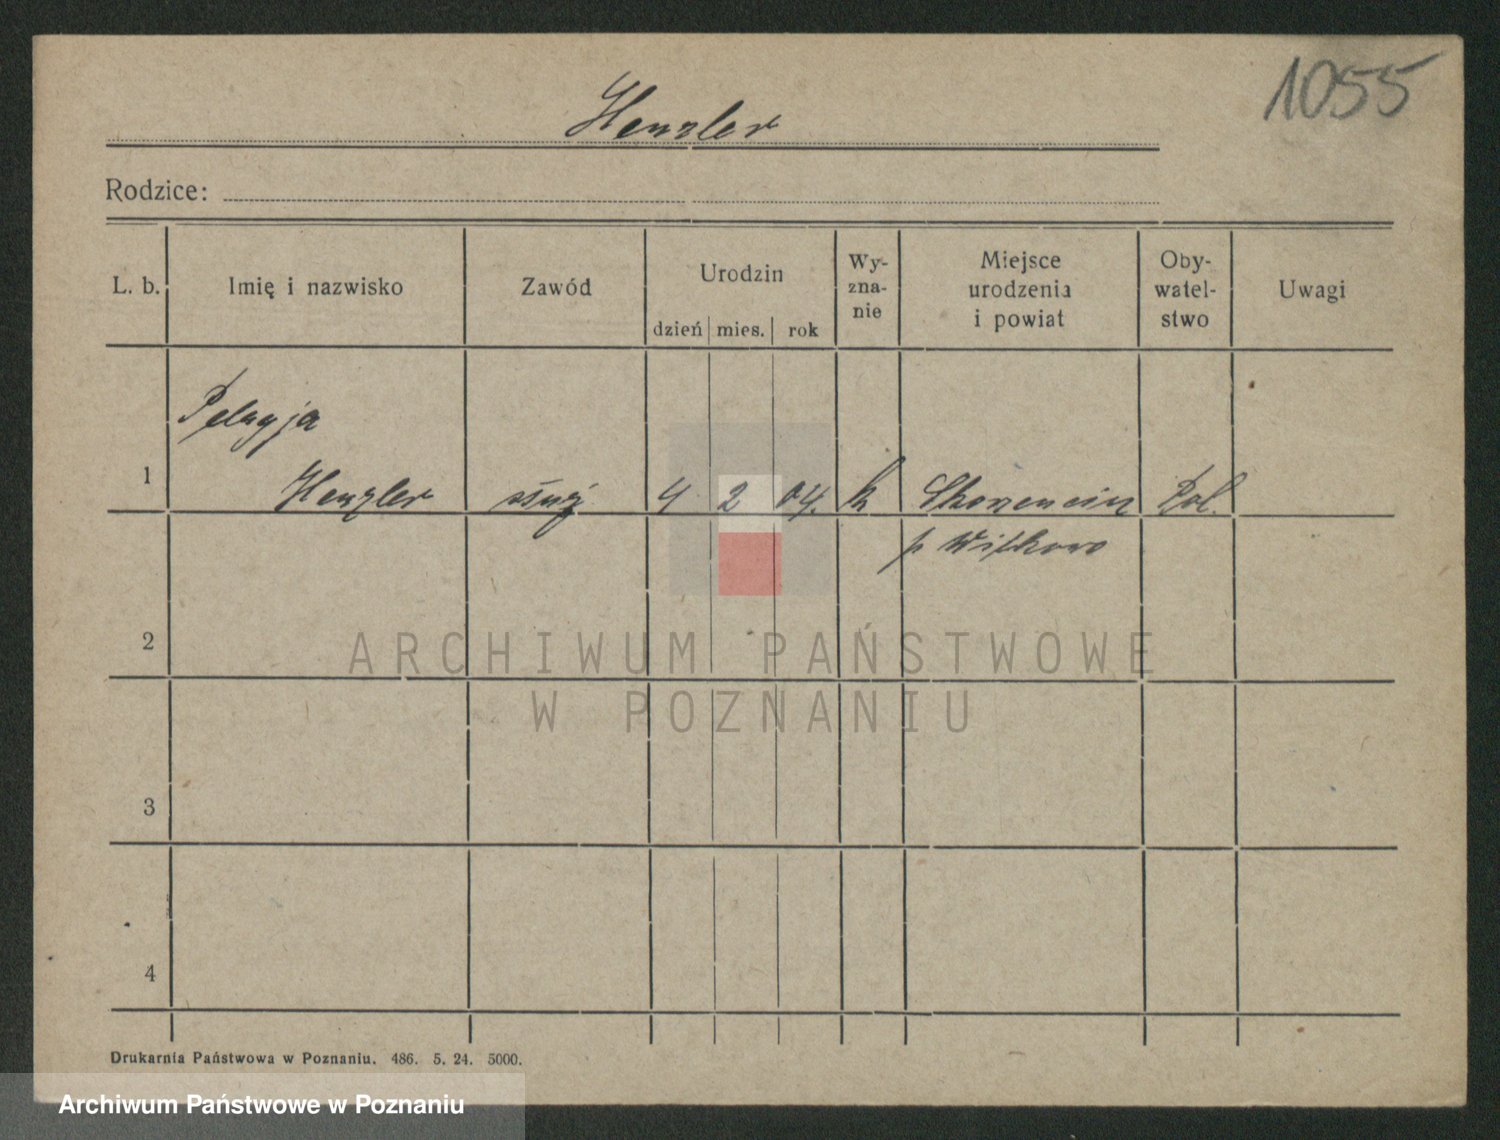 1055
Henzler
Rodzice:
L. b.
Imię i nazwisko
Zawód
Urodzin
dzień
mies.
rok
Wy-
zna-
nie
Miejsce
urodzenia
i powiat
Oby-
watel-
stwo
Uwagi
Pelagja
1 Henzler służ 4 2 04. k Pol.
p Witkowo
2
3
4
ARCHIWUM PAŃSTWOWE
W POZNANIU
Drukarnia Państwowa w Poznaniu. 486. 5. 24. 5000.
Archiwum Państwowe w Poznaniu